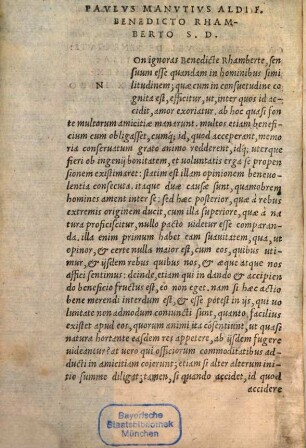 PAVLVS MANVTIVS ALDI F.
BENEDICTO RHAM-
BERTO S. D.
NOn ignoras Benedicte Rhamberte, sen
suum esse quandam in hominibus simi
litudinem; quæ cum in consuetudine co
gnita est, efficitur, ut, inter quos id ac-
cidit, amor exoriatur. ab hoc quasi fon
te multorum amicitiæ manerunt. multos etiam benefi-
cium eum obligasset, eumq; id, quod acceperant, memo
ria conseruatum grato animo redderent, idq; uterque
fieri ob ingenij bonitatem, et uoluntatis erga se propen-
sionem existimaret: statim est illam opinionem beneuo-
lentia consecuta. itaque duæ causæ sunt, quamobrem
homines ament inter se: sed hæc posterior, quæ à rebus
extremis originem ducit, cum illa superiore, quæ à na
tura proficiscitur, nullo pacto uidetur esse comparan-
da. illa enim primum habet eam suauitatem, qua, ut
opinor, & certe nulla maior est, cum eos, quibus uti-
mur, & ijsdem rebus quibus nos, & æque atque nos
affici sentimus: deinde, etiam qui in dando & accipien
do beneficio fructus est, eo non eget. nam si hæc actio
bene merendi interdum est, & esse potest in ijs, qui uo
luntate non admodum coniuncti sunt, quanto, facilius
existet apud eos, quorum animi ita cōsentiunt, ut quasi
natura hortante easdem res appetere, ab ijsdem fugere
uideantur? at uero qui officiorum commoditatibus ad-
ducti in amicitiam coierunt; etiam si alter alterum ini-
tio summo diligat; tamen, si quando accidet, id quod
accidere
Bayerische
Staatsbibliothek
München